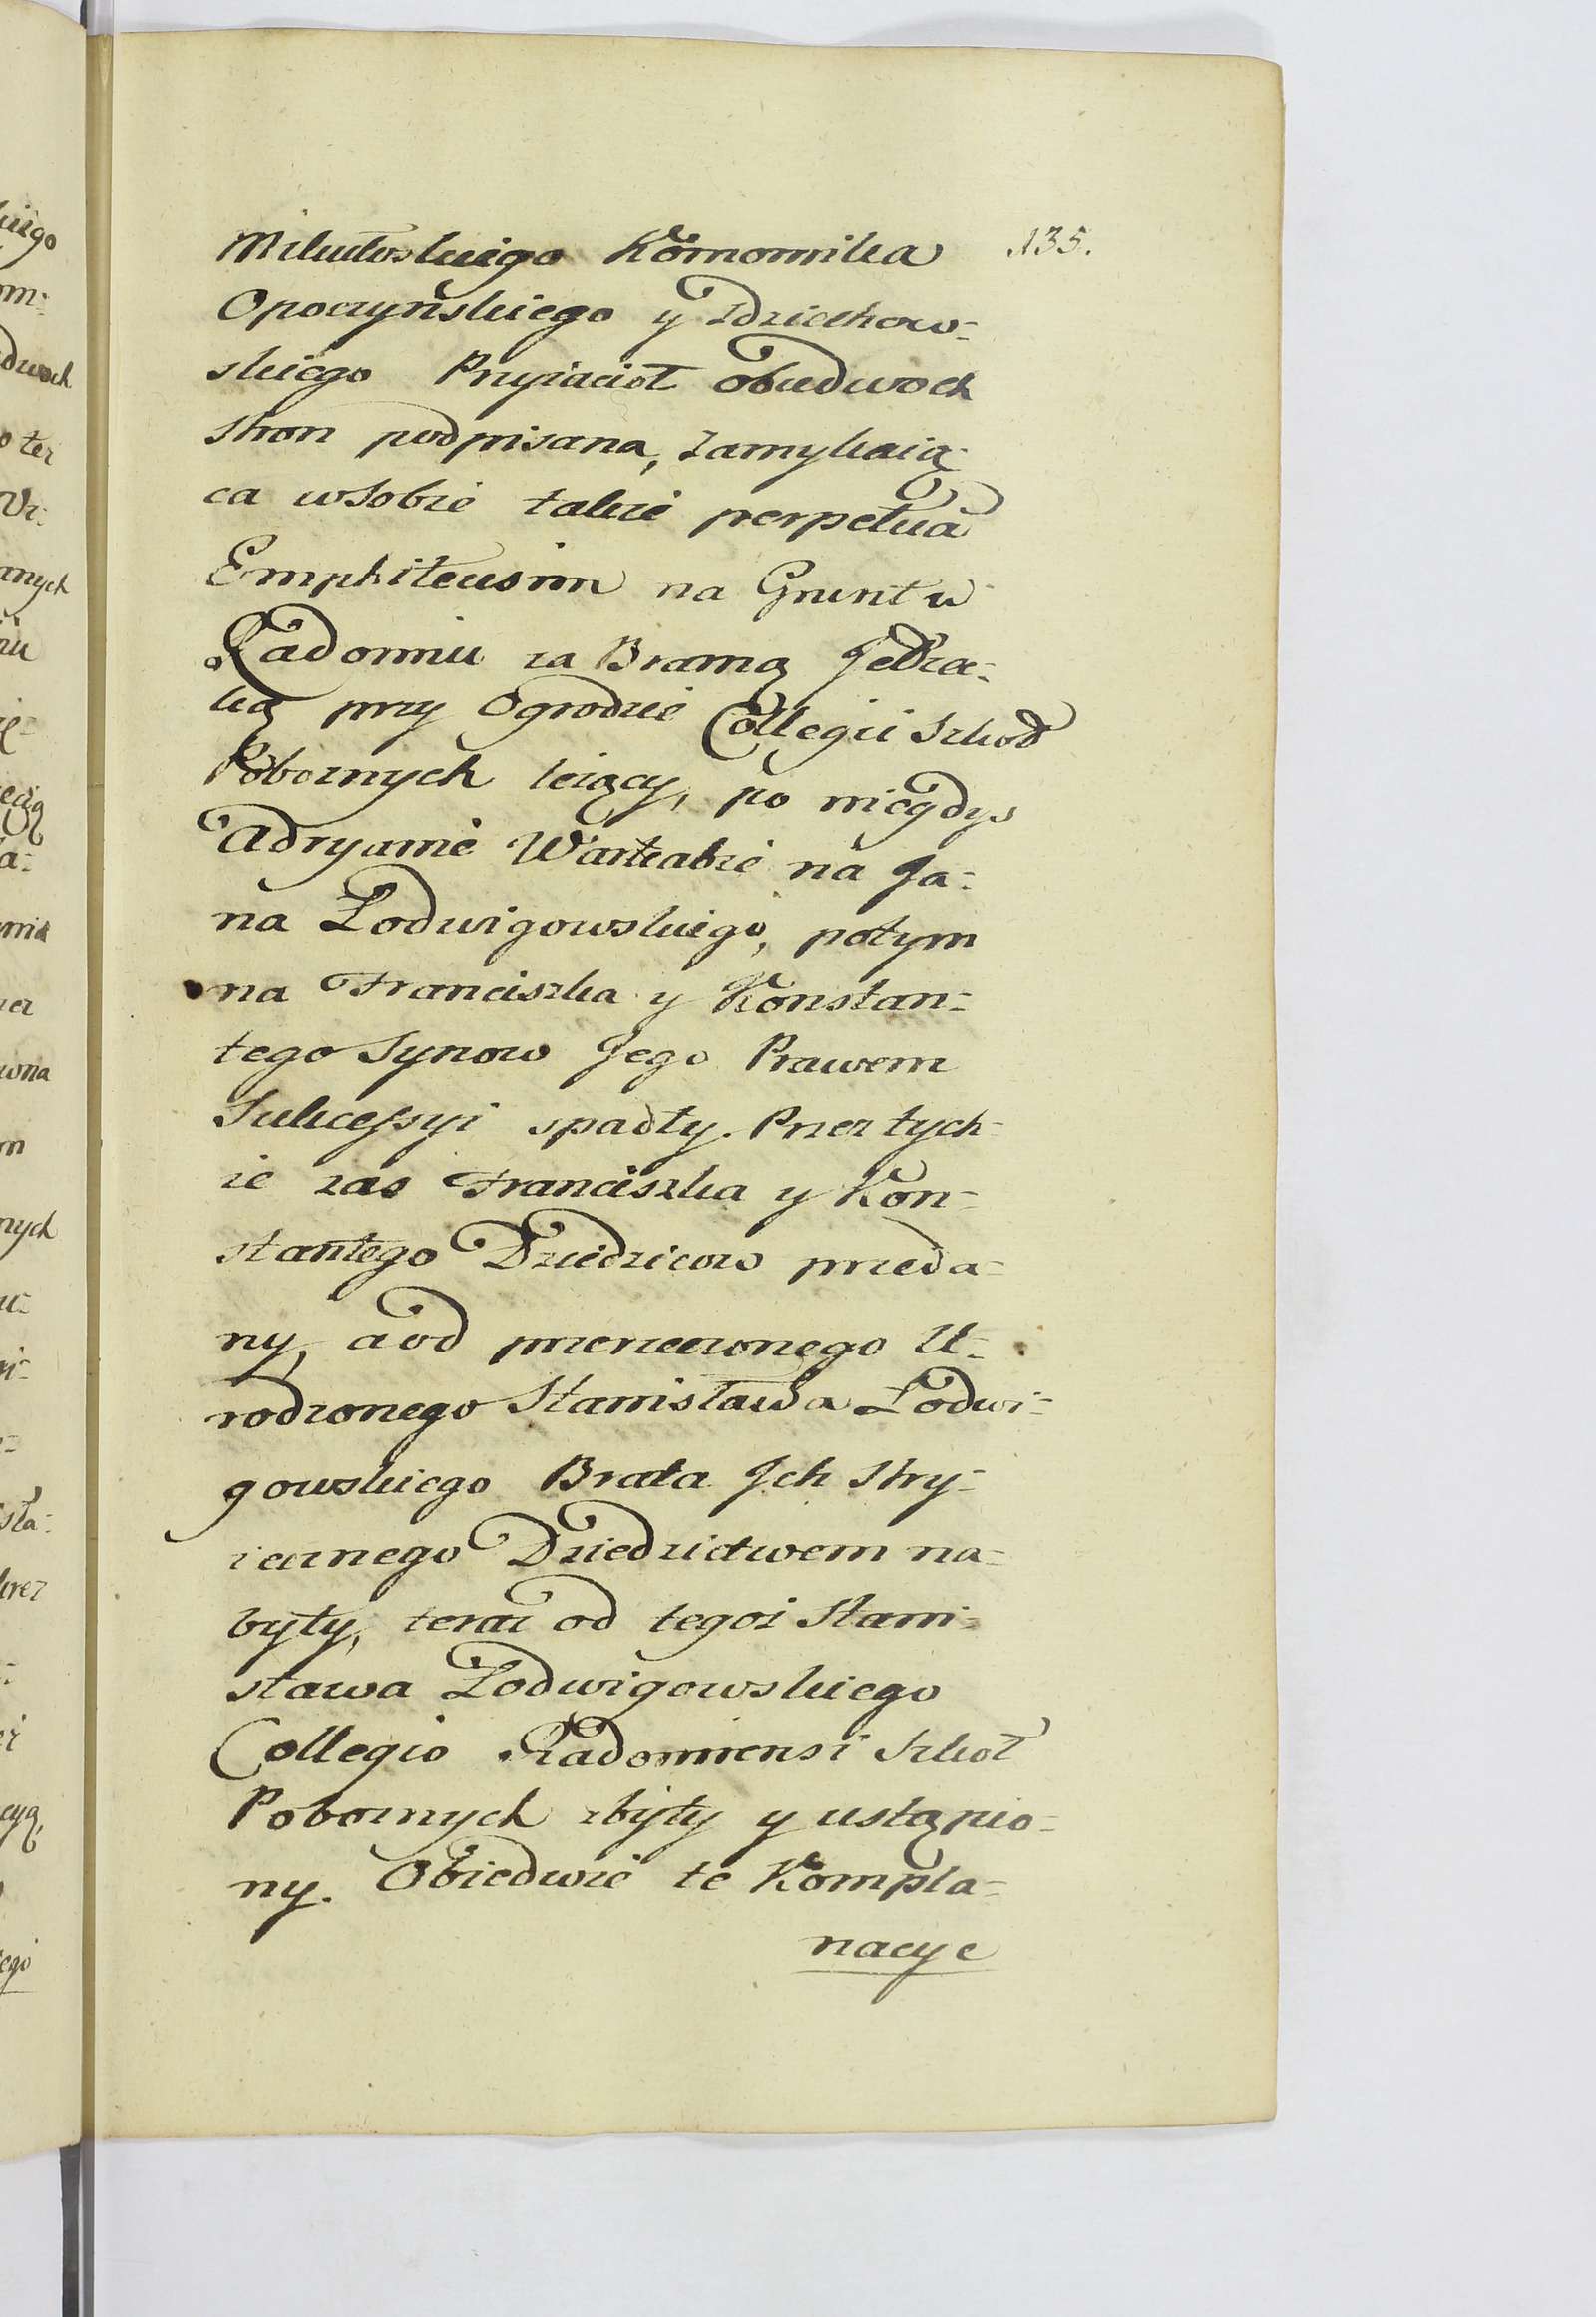 Mikułoskiego Komornika 135.
Opoczyńskiego y Idziechow=
skiego Przyiacioł obudwoch
stron podpisana, zamykaią=
ca wsobie takze perpetua
Emphiteusim na Gruntu
Radomiu za Bramą
ką przy Ogrodzie Collegii Szkoł
Pobożnych leżący, po niegdys
Adryanie na Ja=
na Łodwigowskiego, potym
na Franciszka y Konstan=
tego Synow Jego Prawem
Sukcessyi spadły. Przez tych=
że zas Franciszka y Kon=
stantego Dziedzicow przeda=
ny, a od przerzeczonego U=
rodzonego Stanisława Łodwi=
gowskiego Brata Jch Stry=
iecznego Dziedzictwem na=
byty, teraz od tegoż Stani=
sława Łodwigowskiego
Collegio Radomiensi Szkoł
Pobożnych zbyty y ustąpio=
ny. Obiedwie te Kompla=
nacye